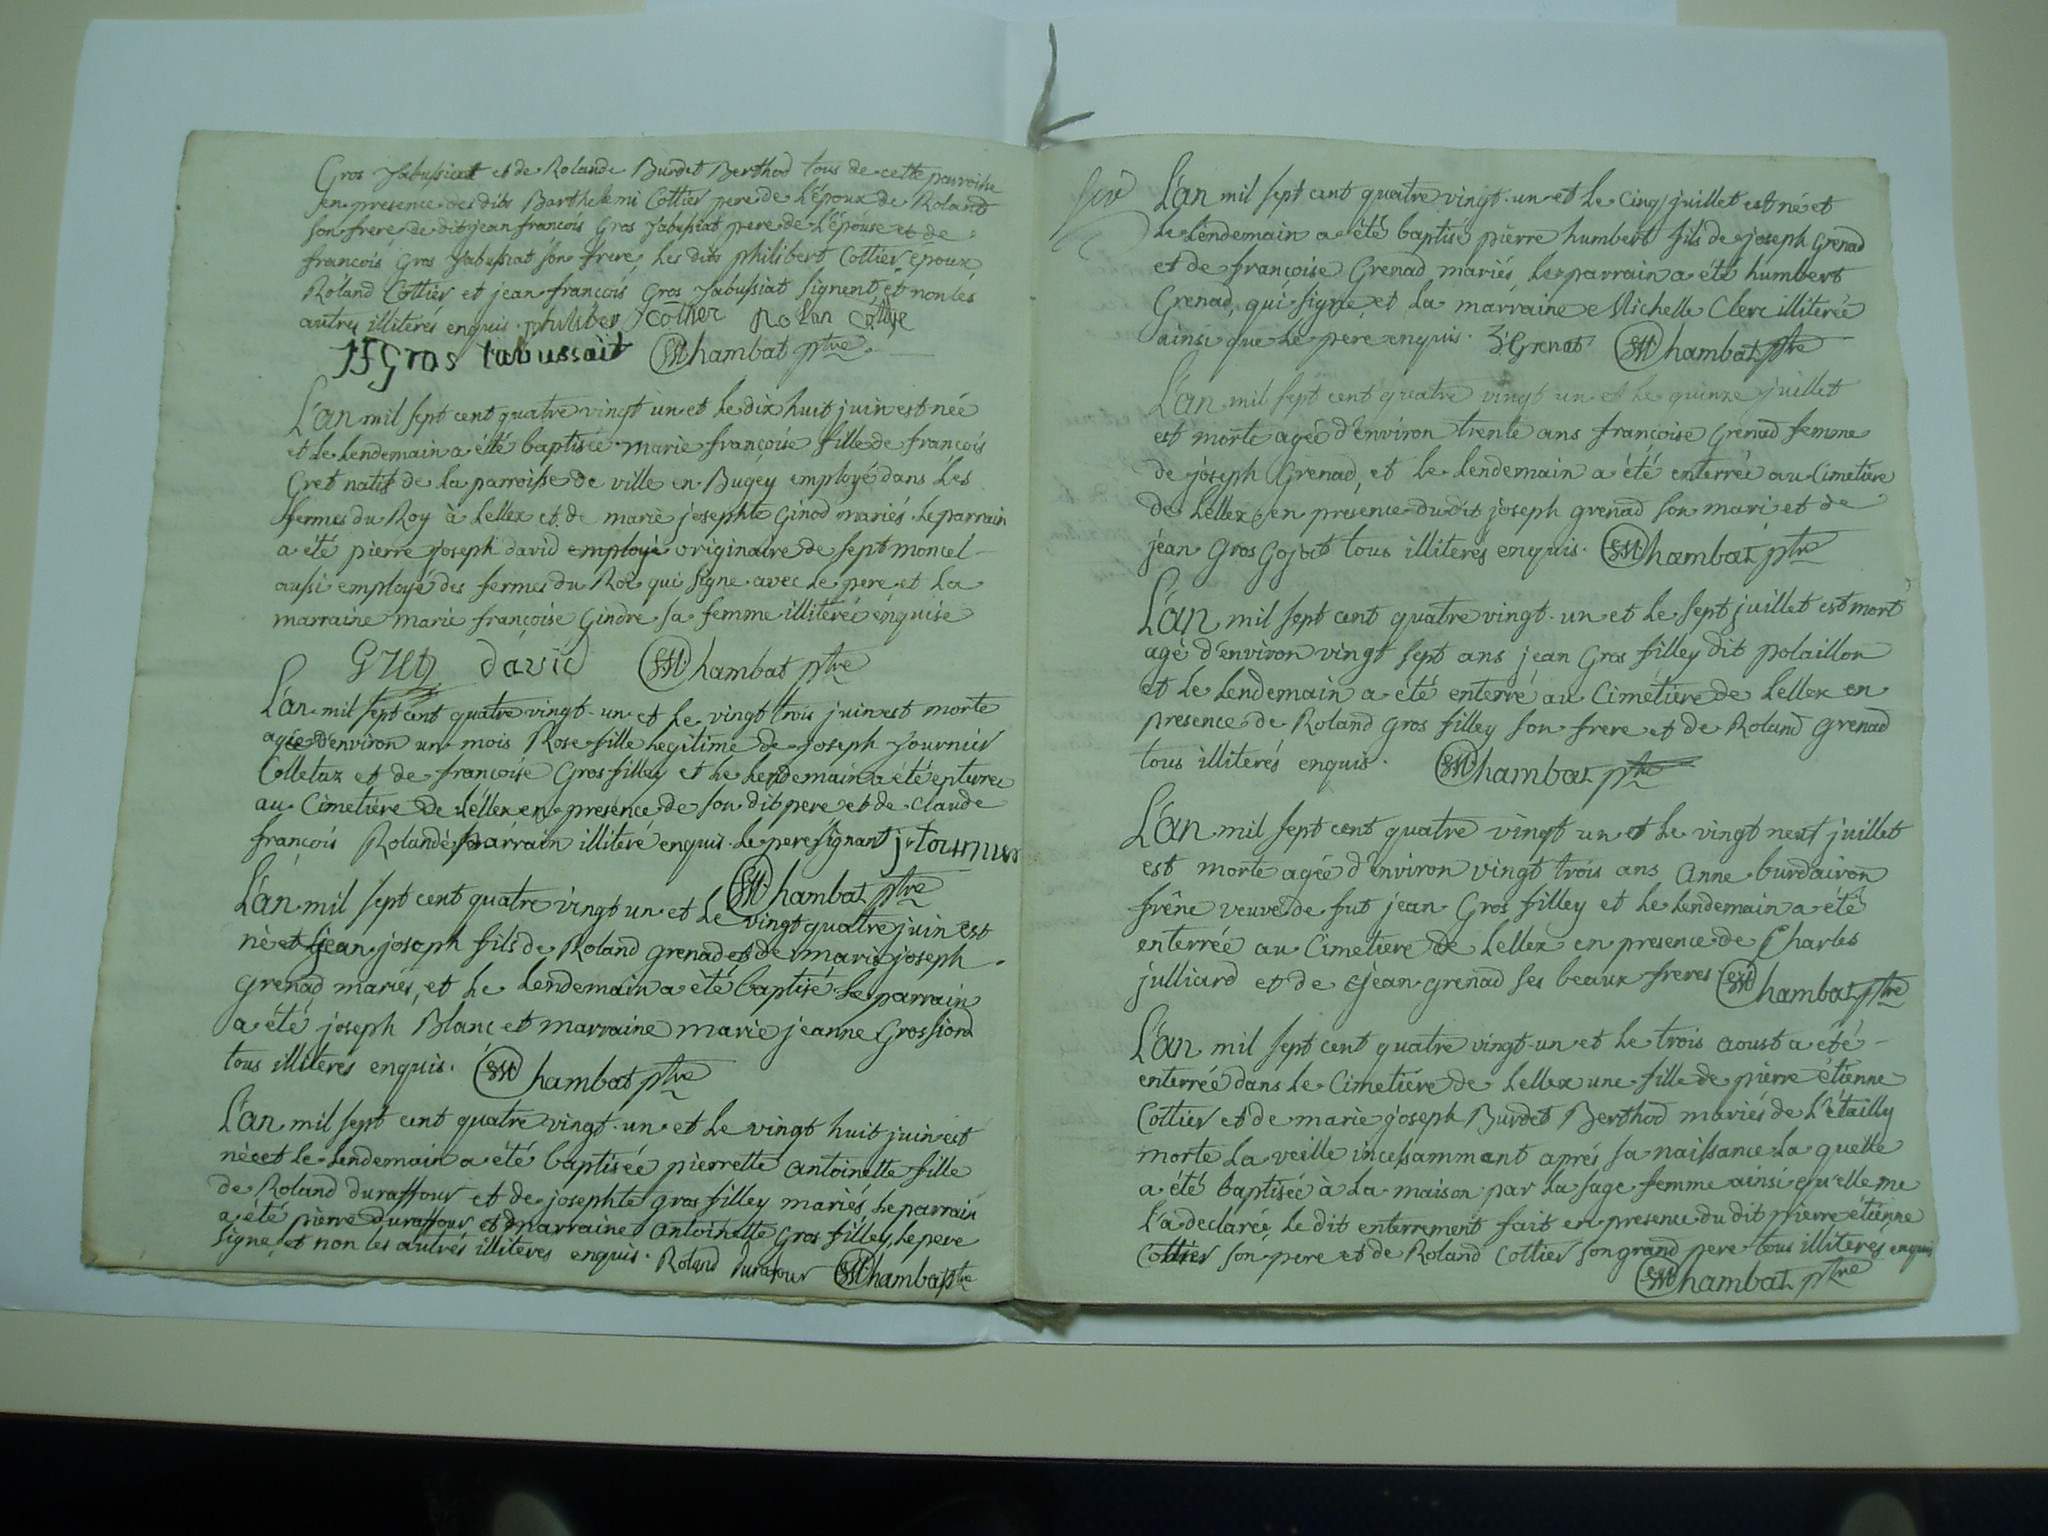 Gros Jabussiat et de Rolande Burdet Berthod tous de cette parroisse
en presence des dits Barthelemi Cottier pere de l'époux de Roland
son frere de dit jean françois Gros Jabussiat pere de l'épouse et de
françois Gros Jabussiat son frere, les dits philibert Cottier epoux,
Roland Cottier et jean françois Gros Jabussiat signent et non les
autres illiterés enquis. philiber cotier Rolan Cottie
JF Gros tabussait Chambat ptre
L'an mil sept cent quatre vingt un et le dix huit juin est née
et le lendemain a été baptisée marie françoise fille de françois
Gret natif de la parroisse de ville en Bugey employé dans les
fermes du Roy à Lellex et de marie josephte Ginod mariés. le parrain
a été pierre joseph david employé originaire de sept moncel
aussi employé des fermes du Roi qui signe avec le pere et la
marraine marie françoise Gindre sa femme illiterée enquise
david Chambat ptre
L'an mil sept cent quatre vingt un et le vingt trois juin est morte
agée d'environ un mois Rose fille legitime de joseph Journier
Colletaz et de françoise Gros filley et le lendemain a été enterrée
au Cimetiere de Lellex en presence de son dit pere et de claude
françois Rolandé parrain illiteré enquis. le pere signant j tournier
Chambat ptre
L'an mil sept cent quatre vingt un et le vingt quatre juin est
né et jean joseph fils de Roland grenad et de marie joseph
grenad mariés, et le lendemain a été baptisé le parrain
a été joseph Blanc et marraine marie jeanne Grossiord
tous illiterés enquis. Chambat ptre
L'an mil sept cent quatre vingt un et le vingt huit juin est
née et le lendemain a été baptisée pierrette antoinette fille
de Roland duraffour et de josephte gros filley mariés, le parrain
a été pierre duraffour et marraine antoinette Gros filley, le pere
signe et non les autres illiterés enquis. Roland durafour Chambat ptre
L'an mil sept cent quatre vingt un et le cinq juillet est né et
le lendemain a été baptisé pierre humbert fils de joseph Grenad
et de françoise Grenad mariés, le parrain a été humbert
Grenad, qui signe et la marraine Michelle Clerc illiterée
ainsi que le pere enquis. Grenat Chambat ptre
L'an mil sept cent quatre vingt un et le quinze juillet
est morte agée d'environ trente ans françoise Grenad femme
de joseph Grenad, et le lendemain a été enterrée au Cimetiere
de Lellex en presence du dit joseph grenad son mari et de
jean Gros Gojoct tous illiterés enquis. Chambat ptre
L'an mil sept cent quatre vingt un et le sept juillet est mort
agé d'environ vingt sept ans jean Gros filley dit polaillon
et le lendemain a été enterré au Cimétiere de Lellex en
presence de Roland Gros filley son frere et de Roland grenad
tous illiterés enquis. Chambat ptre
L'an mil sept cent quatre vingt un et le vingt neuf juillet
est morte agée d'environ vingt trois ans Anne burdairon
frêne veuve de fut jean Gros filley et le lendemain a été
enterrée au Cimetiere de Lellex en presence de Charles
julliard et de jean grenad ses beaux freres Chambat ptre
L'an mil sept cent quatre vingt un et le trois aoust a été
enterrée dans le Cimetiere de Lellex une fille de pierre étienne
Cottier et de marie joseph Burdet Berthod mariés de l'étailly
morte la veille incessamment aprés sa naissance la quelle
a été baptisée à la maison par la sage femme ainsi qu'elle me
l'a declarée, le dit enterrement fait en presence du dit pierre étienne
Cottier son pere et de Roland Cottier son grand pere tous illiterés enquis
Chambat ptre